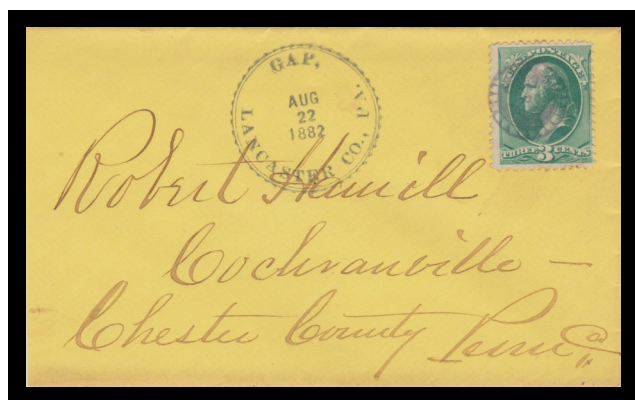 GAP,
PA.
AUG
22
1882
LANCASTER CO.,
U.S. POSTAGE
THREE 3 CENTS
Robert Hamill
Cochranville —
Chester County Penna